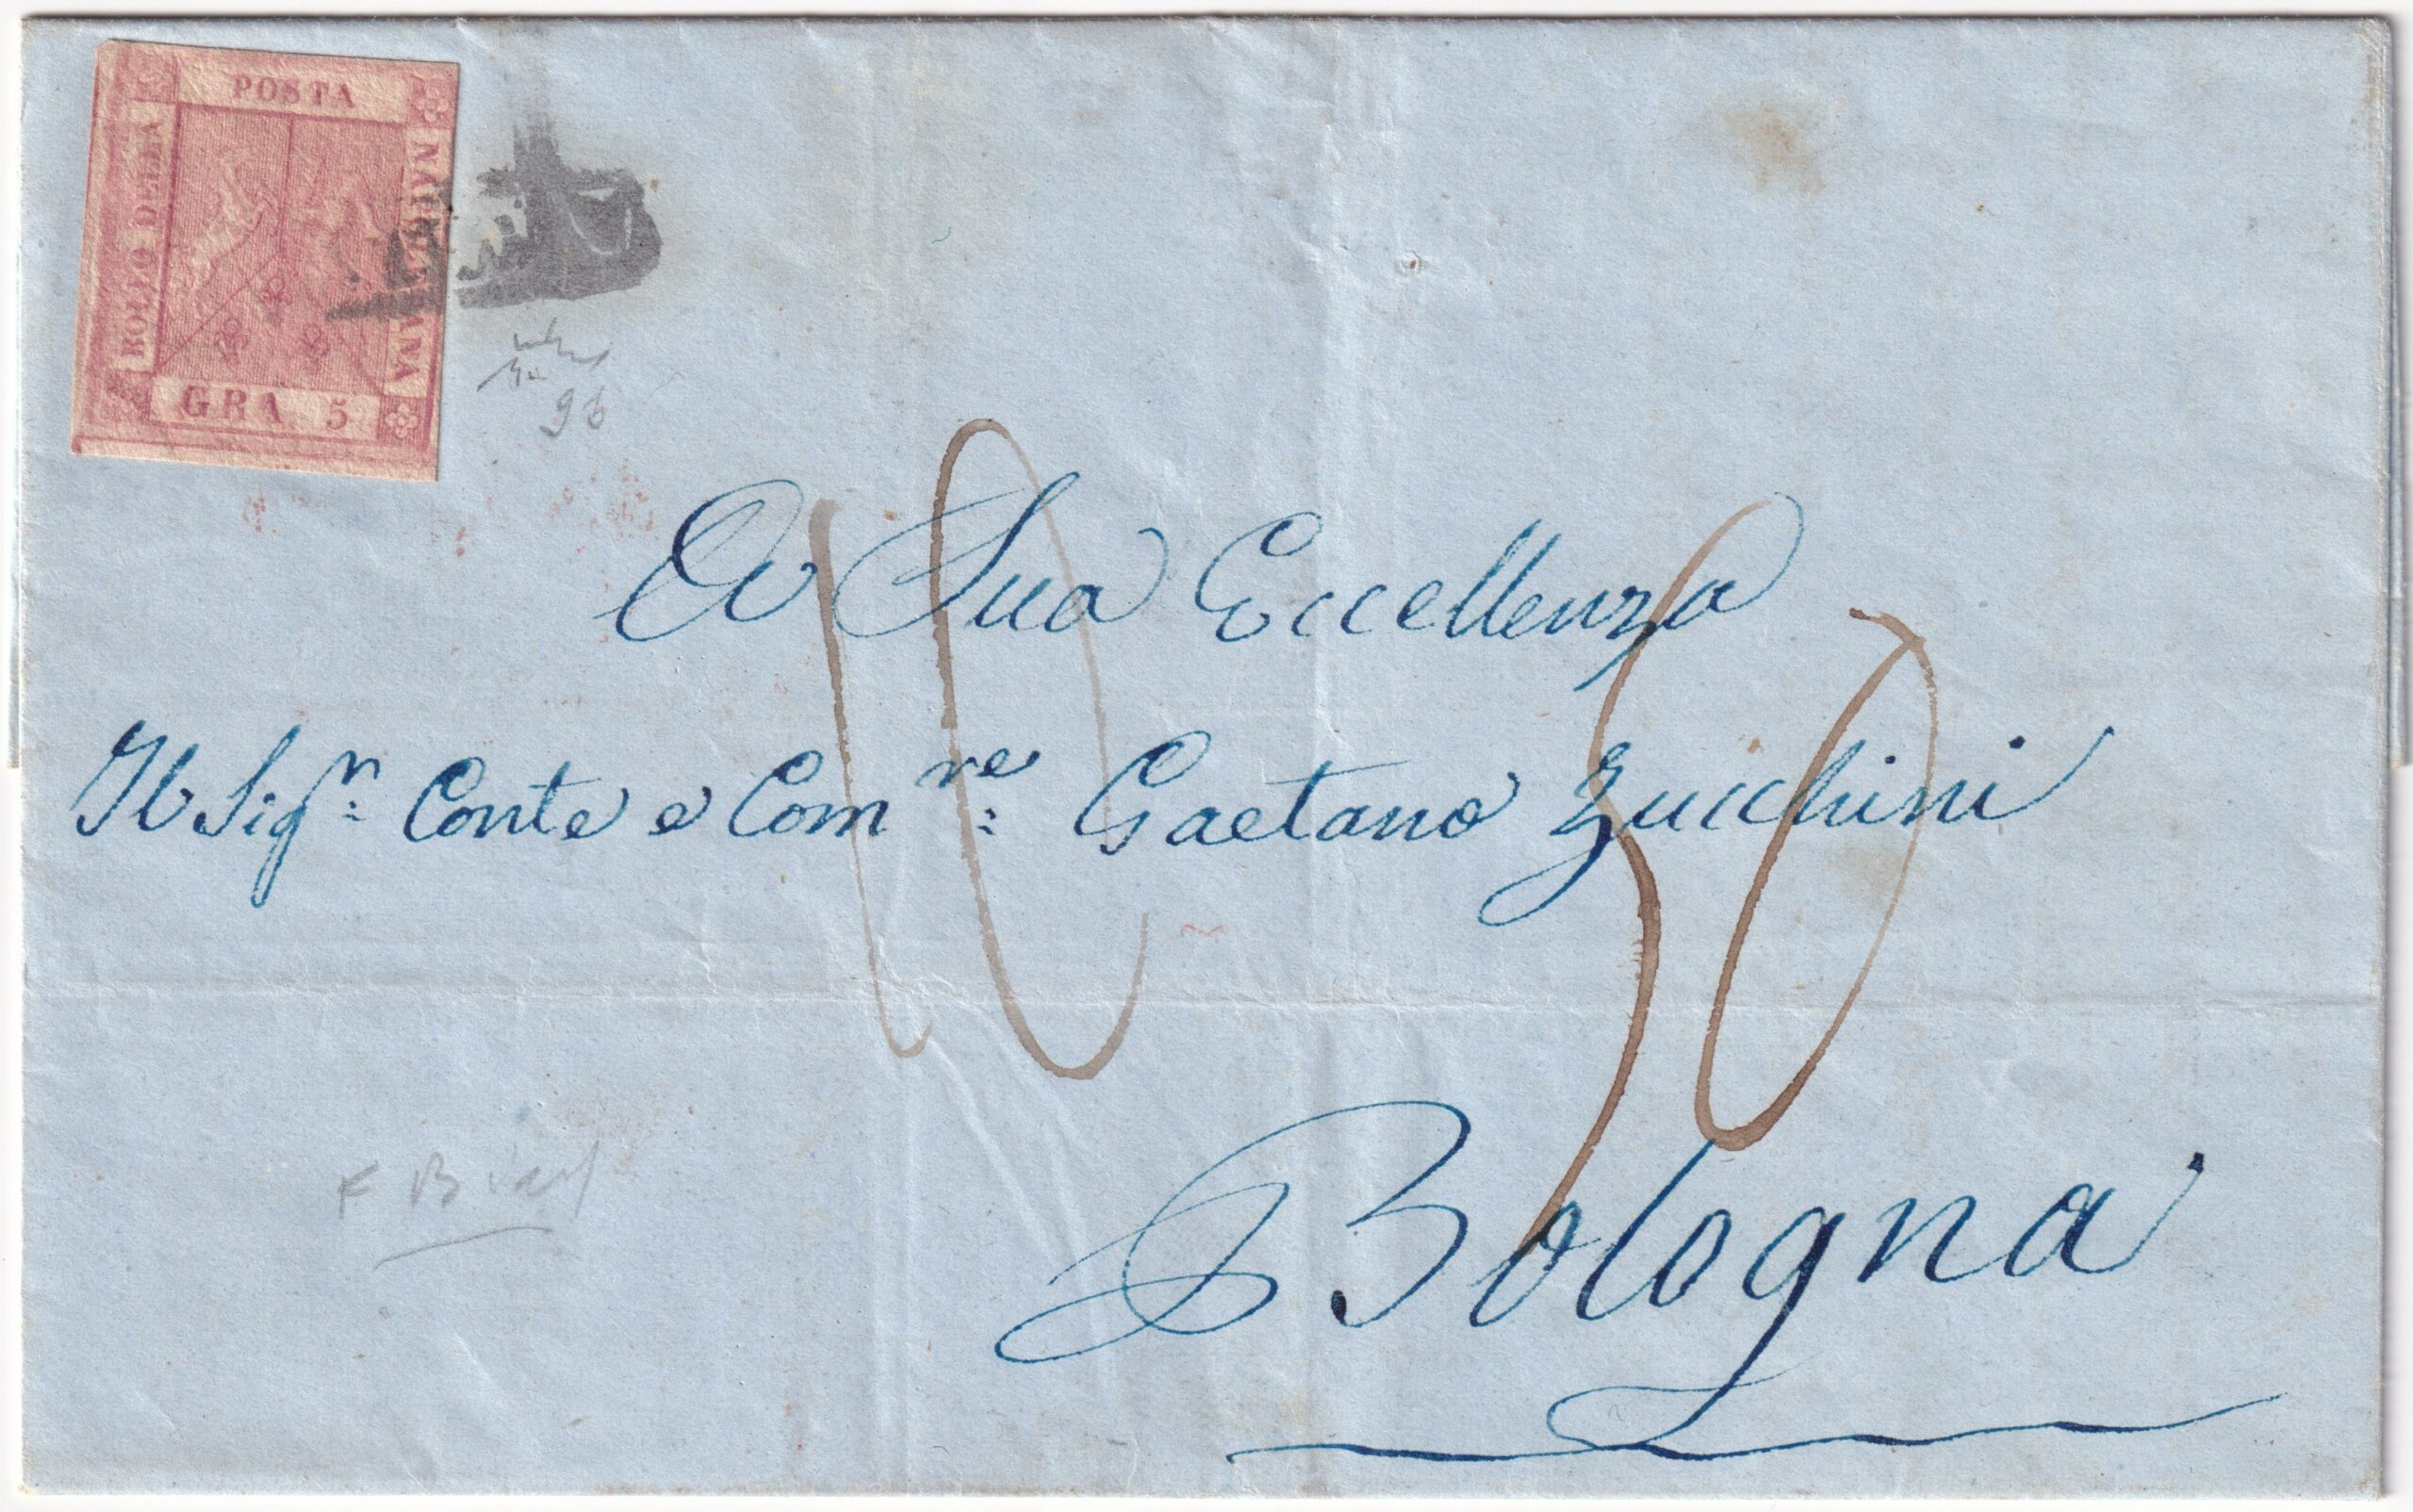 POSTA
BOLLO DELLA
NAPOLETANA
GRA 5
96
A Sua Eccellenza
Il Sigr: Conte e Comre: Gaetano Zucchini
10
50
Bologna